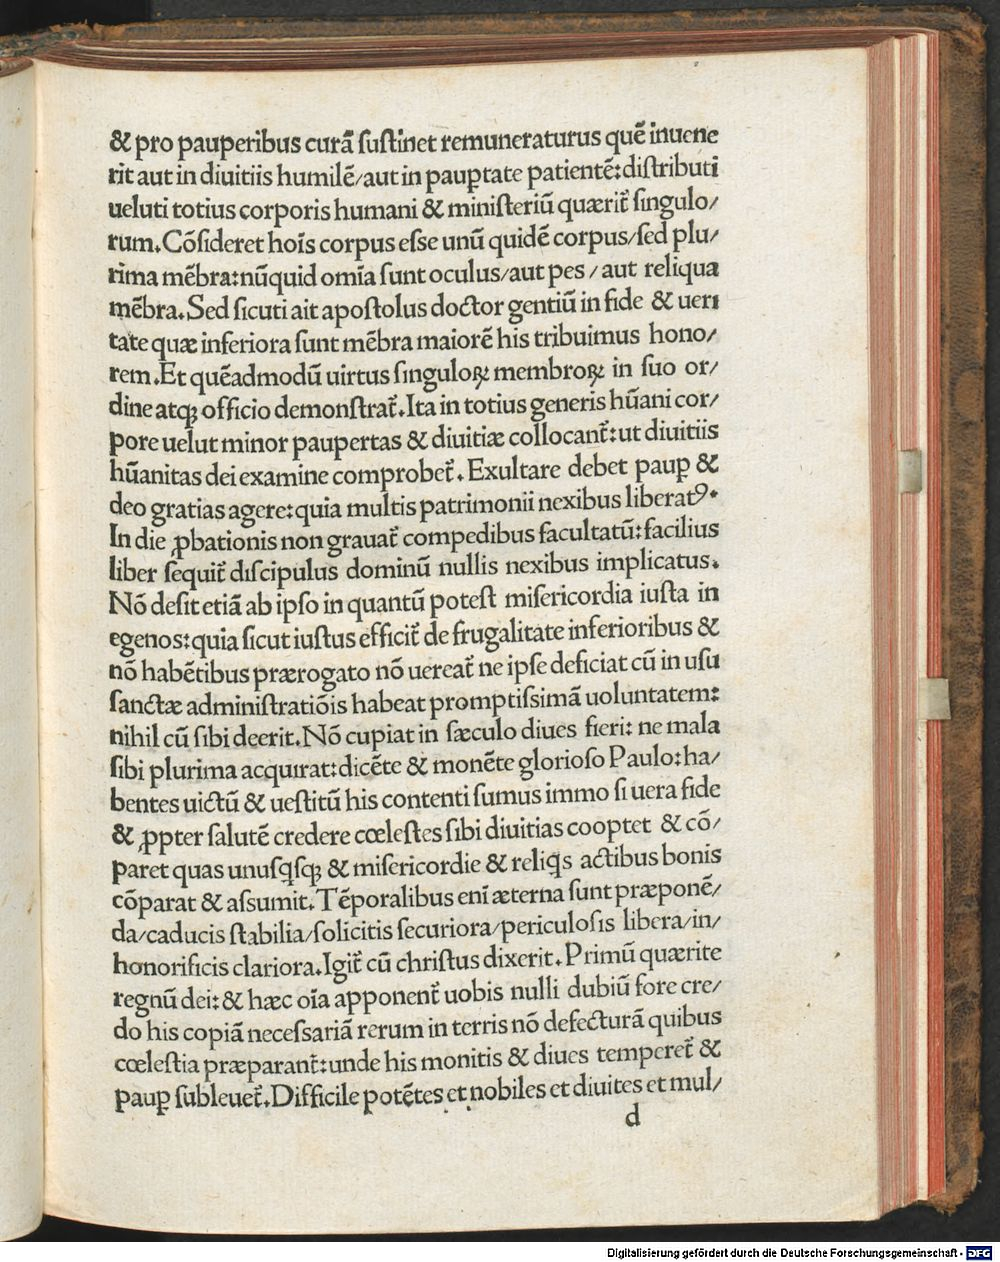 & pro pauperibus curā ſuſtinet remuneraturus quē inuene
rit aut in diuitiis humilē/aut in paup̲tate patientē:diſtributi
ueluti totius corporis humani & miniſteriū quærit᷑ ſingulo/
rum.Cōſideret hoīs corpus eſſe unū quidē corpus/ſed plu/
rima mēbra:nūquid omīa ſunt oculus/aut pes / aut reliqua
mēbra.Sed ſicuti ait apoſtolus doctor gentiū in fide & ueri
tate quæ inferiora ſunt mēbra maiorē his tribuimus hono/
rem.Et quēadmodū uirtus ſinguloꝝ membroꝝ in ſuo or/
dine atqꝫ officio demonſtrat᷑.Ita in totius generis hūani cor/
pore uelut minor paupertas & diuitiæ collocant᷑:ut diuitiis
hūanitas dei examine comprobet᷑. Exultare debet paup̲ &
deo gratias agere:quia multis patrimonii nexibus liberatꝰ.
In die ꝓbationis non grauat᷑ compedibus facultatū:facilius
liber ſequit᷑ diſcipulus dominū nullis nexibus implicatus.
Nō deſit etiā ab ipſo in quantū poteſt miſericordia iuſta in
egenos:quia ſicut iuſtus efficit᷑ de frugalitate inferioribus &
nō habētibus prærogato nō uereat᷑ ne ipſe deficiat cū in uſu
ſanctæ adminiſtratiōis habeat promptiſſimā uoluntatem:
nihil cū ſibi deerit.Nō cupiat in ſæculo diues fieri: ne mala
ſibi plurima acquirat:dicēte & monēte glorioſo Paulo:ha/
bentes uictū & ueſtitū his contenti ſumus immo ſi uera fide
& ꝓpter ſalutē credere cœleſtes ſibi diuitias cooptet & cō/
paret quas unuſqſqꝫ & miſericordie & reliqs actibus bonis
cōparat & aſſumit.Tēporalibus enī æterna ſunt præponē/
da/caducis ſtabilia/ſolicitis ſecuriora/periculoſis libera/in/
honorificis clariora.Igit᷑ cū chriſtus dixerit.Primū quærite
regnū dei:& hæc oīa apponent᷑ uobis nulli dubiū fore cre/
do his copiā neceſſariā rerum in terris nō defecturā quibus
cœleſtia præparant᷑:unde his monitis & diues temperet᷑ &
paup̲ ſubleuet᷑.Difficile potētes et nobiles et diuites et mul/
d
Digitalisierung gefördert durch die Deutsche Forschungsgemeinschaft - DFG